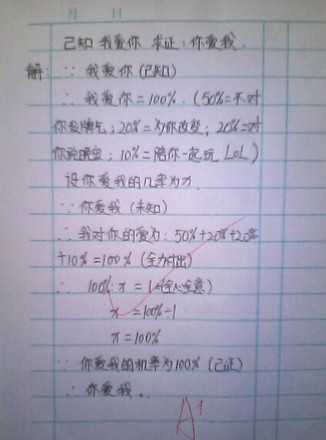 月 日
已知 我爱你 求证:你爱我.
解: ∵ 我爱你(已知)
∴ 我爱你=100%.(50%=不对
你发脾气;20%=为你改变;20%=对
你说晚安;10%=陪你一起玩 LOL)
设你爱我的几率为x.
∵ 你爱我(未知)
∴ 我对你的爱为:50%+20%+20%
+10%=100%(全力付出)
∴ 100%:x=1(全心全意)
x=100%÷1
x=100%
∵ 你爱我的机率为100%(已证)
∴ 你爱我.
A